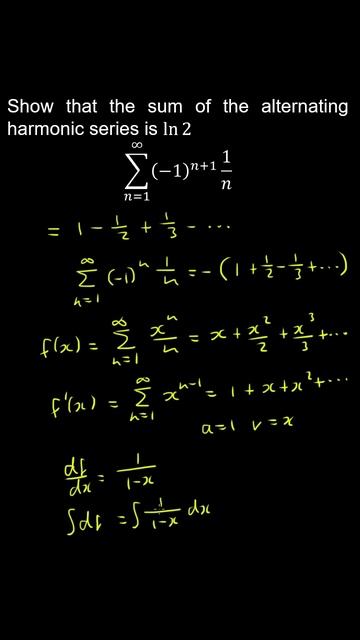 Show that the sum of the alternating
harmonic series is ln 2
∑_{n=1}^{∞} (−1)^{n+1} 1/n
= 1 − 1/2 + 1/3 − ...
∑_{n=1}^{∞} (−1)^n 1/n = −(1 + 1/2 − 1/3 + ...)
f(x) = ∑_{n=1}^{∞} x^n/n = x + x^2/2 + x^3/3 + ...
f'(x) = ∑_{n=1}^{∞} x^{n−1} = 1 + x + x^2 + ...
a=1 r=x
df/dx = 1/(1−x)
∫df = ∫ 1/(1−x) dx